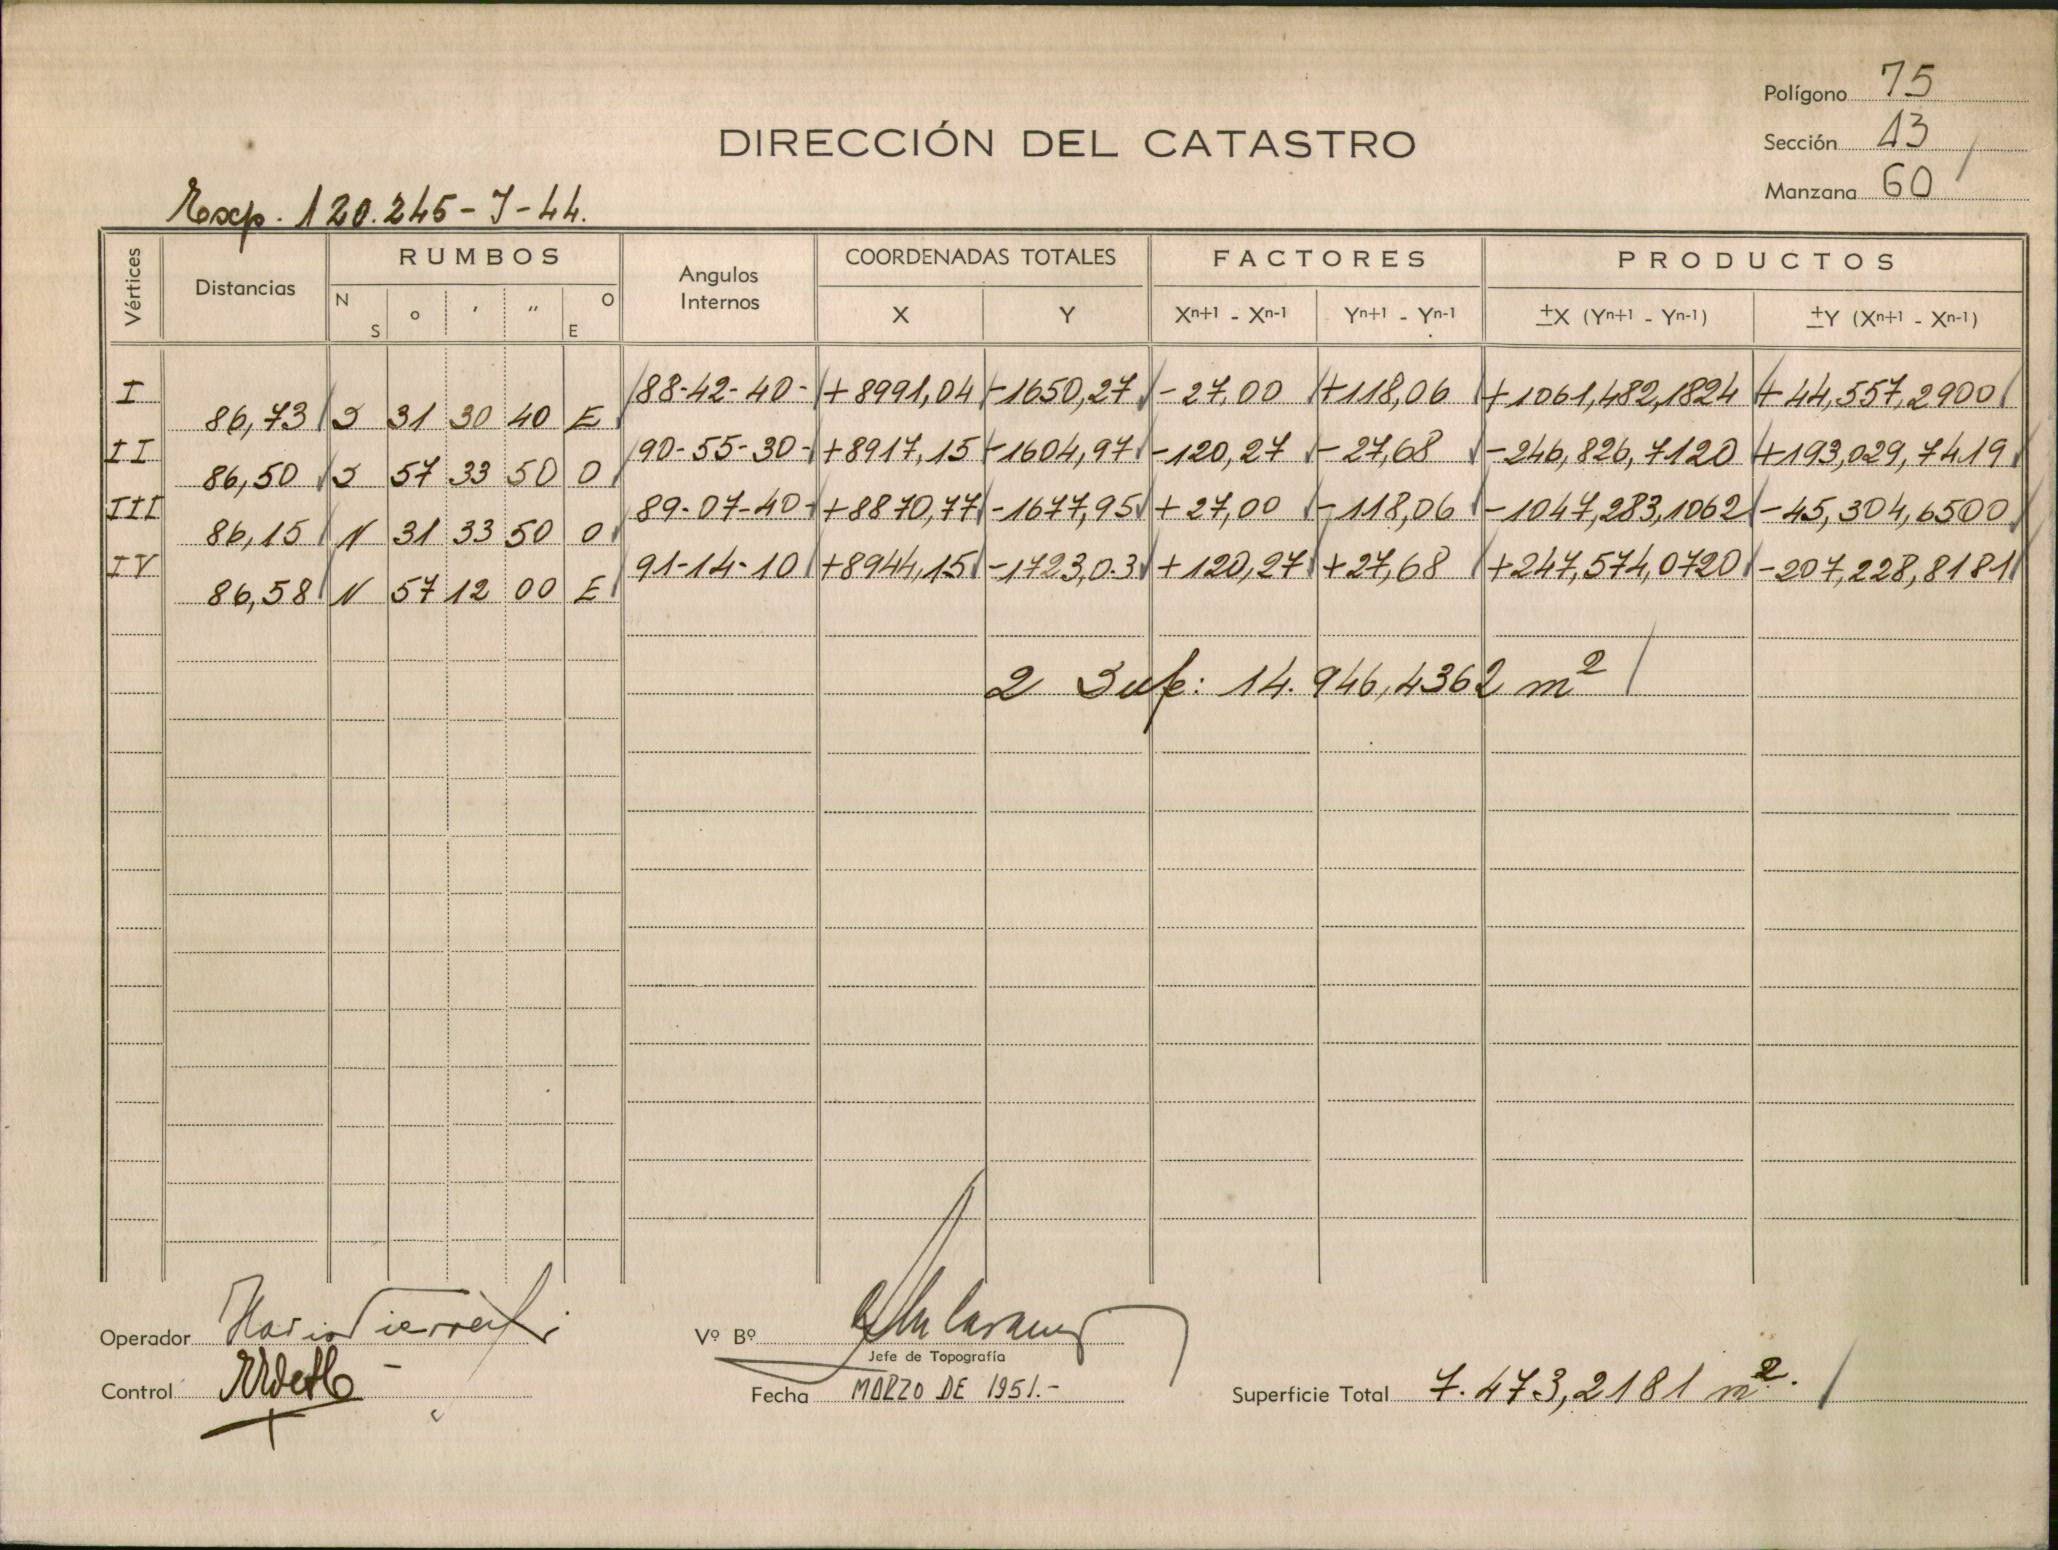 Polígono 75
DIRECCIÓN DEL CATASTRO
Sección 13
Manzana 60
Exp. 120.245-J-44.
Vértices Distancias RUMBOS Angulos Internos COORDENADAS TOTALES FACTORES PRODUCTOS
N S ° ' " O E X Y Xn+1 - Xn-1 Yn+1 - Yn-1 ±X (Yn+1 - Yn-1) ±Y (Xn+1 - Xn-1)
I 88-42-40- +8991,04 -1650,27 -27,00 +118,06 +1061,482,1824 +44,557,2900
86,73 S 31 30 40 E
II 90-55-30- +8917,15 -1604,97 -120,27 -27,68 -246,826,7120 +193,029,7419
86,50 S 57 33 50 O
III 89-07-40- +8870,77 -1677,95 +27,00 -118,06 -1047,283,1062 -45,304,6500
86,15 N 31 33 50 O
IV 91-14-10 +8944,15 -1723,03 +120,27 +27,68 +247,574,0720 -207,228,8181
86,58 N 57 12 00 E
2 Sup: 14.946,4362 m²
Operador
Vº Bº
Jefe de Topografía
Control
Fecha MARZO DE 1951.-
Superficie Total 7.473,2181 m².